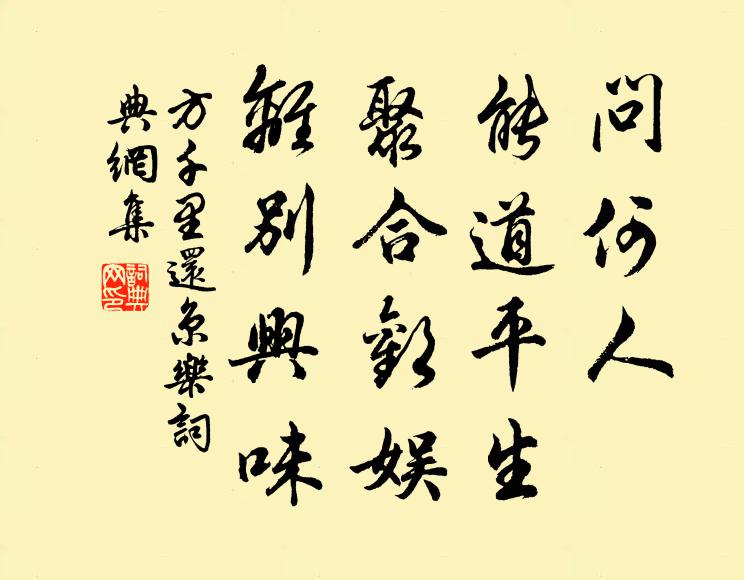 問何人
能道平生
聚合歡娛
離別興味
方千里還京樂詞
典網集
詞典網印